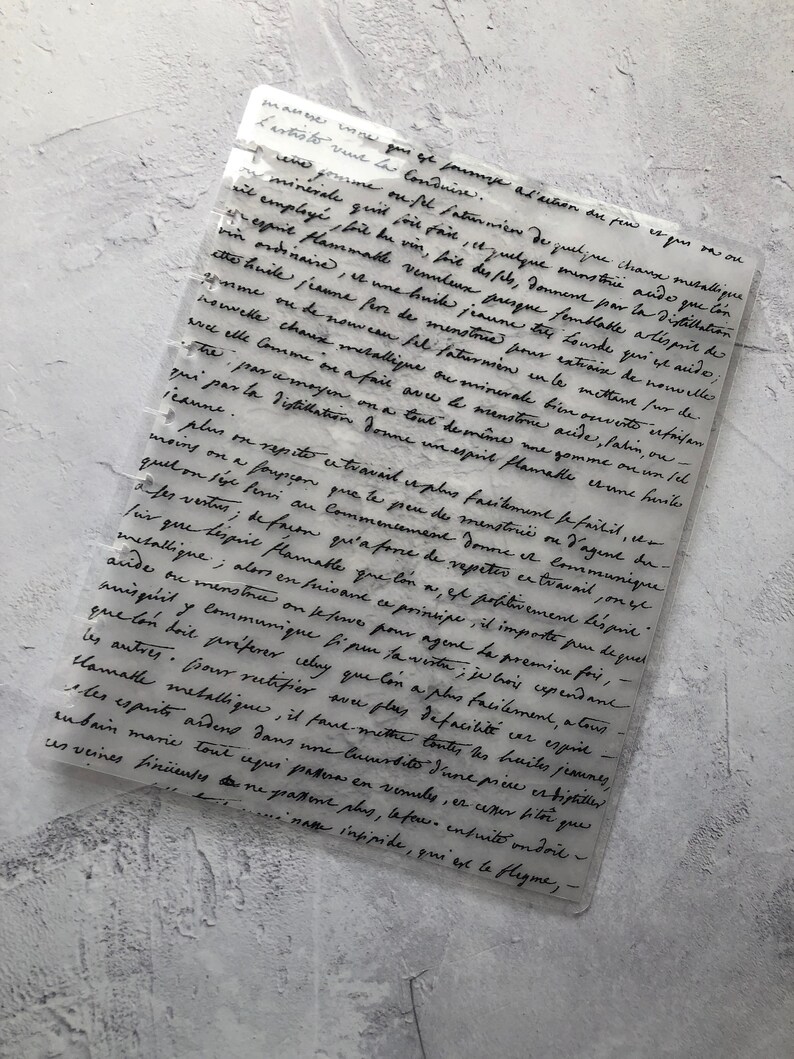 matiere qui est soumise a l'action du feu et qui va ou
l'artiste veut la conduire.
cette gomme ou sel saturnien de quelque chaux metallique
ou minérale qu'il soit fait, et quelque menstrüe acide que l'on
ait employé, soit du vin, soit des sels, donnent par la distillation
un esprit flammable venuleux presque semblable a l'esprit de
vin ordinaire, et une huile jeaune tres lourde qui est acide;
cette huile jeaune sert de menstrüe pour extraire de nouvelle
gomme ou de nouveau sel saturnien en le mettant sur de
nouvelle chaux metallique ou minerale bien ouverte et faisant
avec elle comme on a fait avec le menstrüe acide, salin, ou -
par ce moyen on a tout de même une gomme ou un sel
qui par la distillation donne un esprit flamable et une huile
jeaune.
plus on repete ce travail et plus facilement se fait il, et
moins on a soupçon que le peu de menstrüe ou d'agent du-
quel on s'est servi au commencement donne et communique
a ses vertus; de façon qu'a force de repeter ce travail, on est
sûr que l'esprit flamable que l'on a, est positivement l'esprit
metallique; alors en suivant ce principe, il importe peu de quel
acide ou menstrüe on se serve pour agent la premiere fois, -
puisqu'il y communique si peu sa vertu; je crois cependant
que l'on doit préferer celuy que l'on a plus facilement, a tous
les autres. pour rectifier avec plus de facilité cet esprit -
flamable metallique, il faut mettre toutes les huiles jeaunes,
et les esprits ardens dans une cucurbite d'une piece et distiller
au bain marie tout ce qui passera en venules, et cesser sitôt que
ces veines sinüeuses ne passent plus, le feu. ensuite on doit -
qui passe insipide, qui est le flegme, -